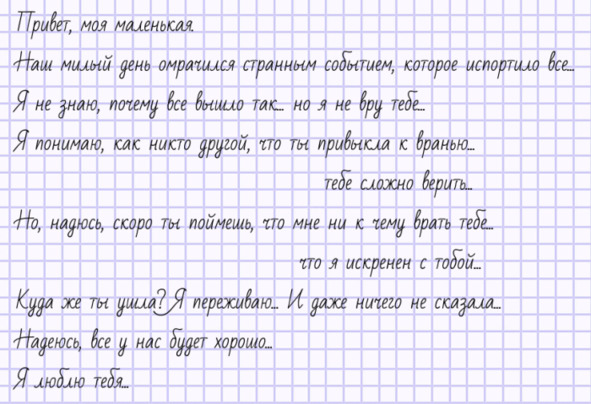 Привет, моя маленькая.
Наш милый день омрачился странным событием, которое испортило все...
Я не знаю, почему все вышло так... но я не вру тебе...
Я понимаю, как никто другой, что ты привыкла к вранью...
тебе сложно верить...
Но, надюсь, скоро ты поймешь, что мне ни к чему врать тебе...
что я искренен с тобой...
Куда же ты ушла? Я переживаю... И даже ничего не сказала...
Надеюсь, все у нас будет хорошо...
Я люблю тебя...